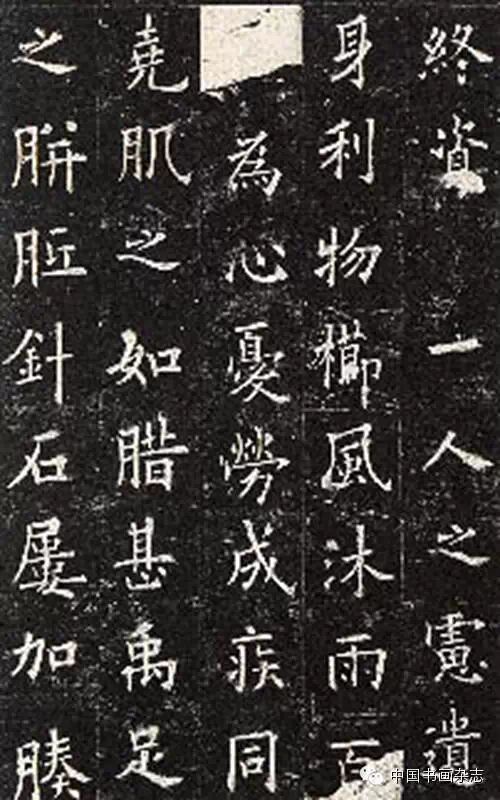 終資一人之慮遺
身利物櫛風沐雨百
為心憂勞成疾同
堯肌之如腊甚禹足
之胼胝針石屢加腠
中国书画杂志